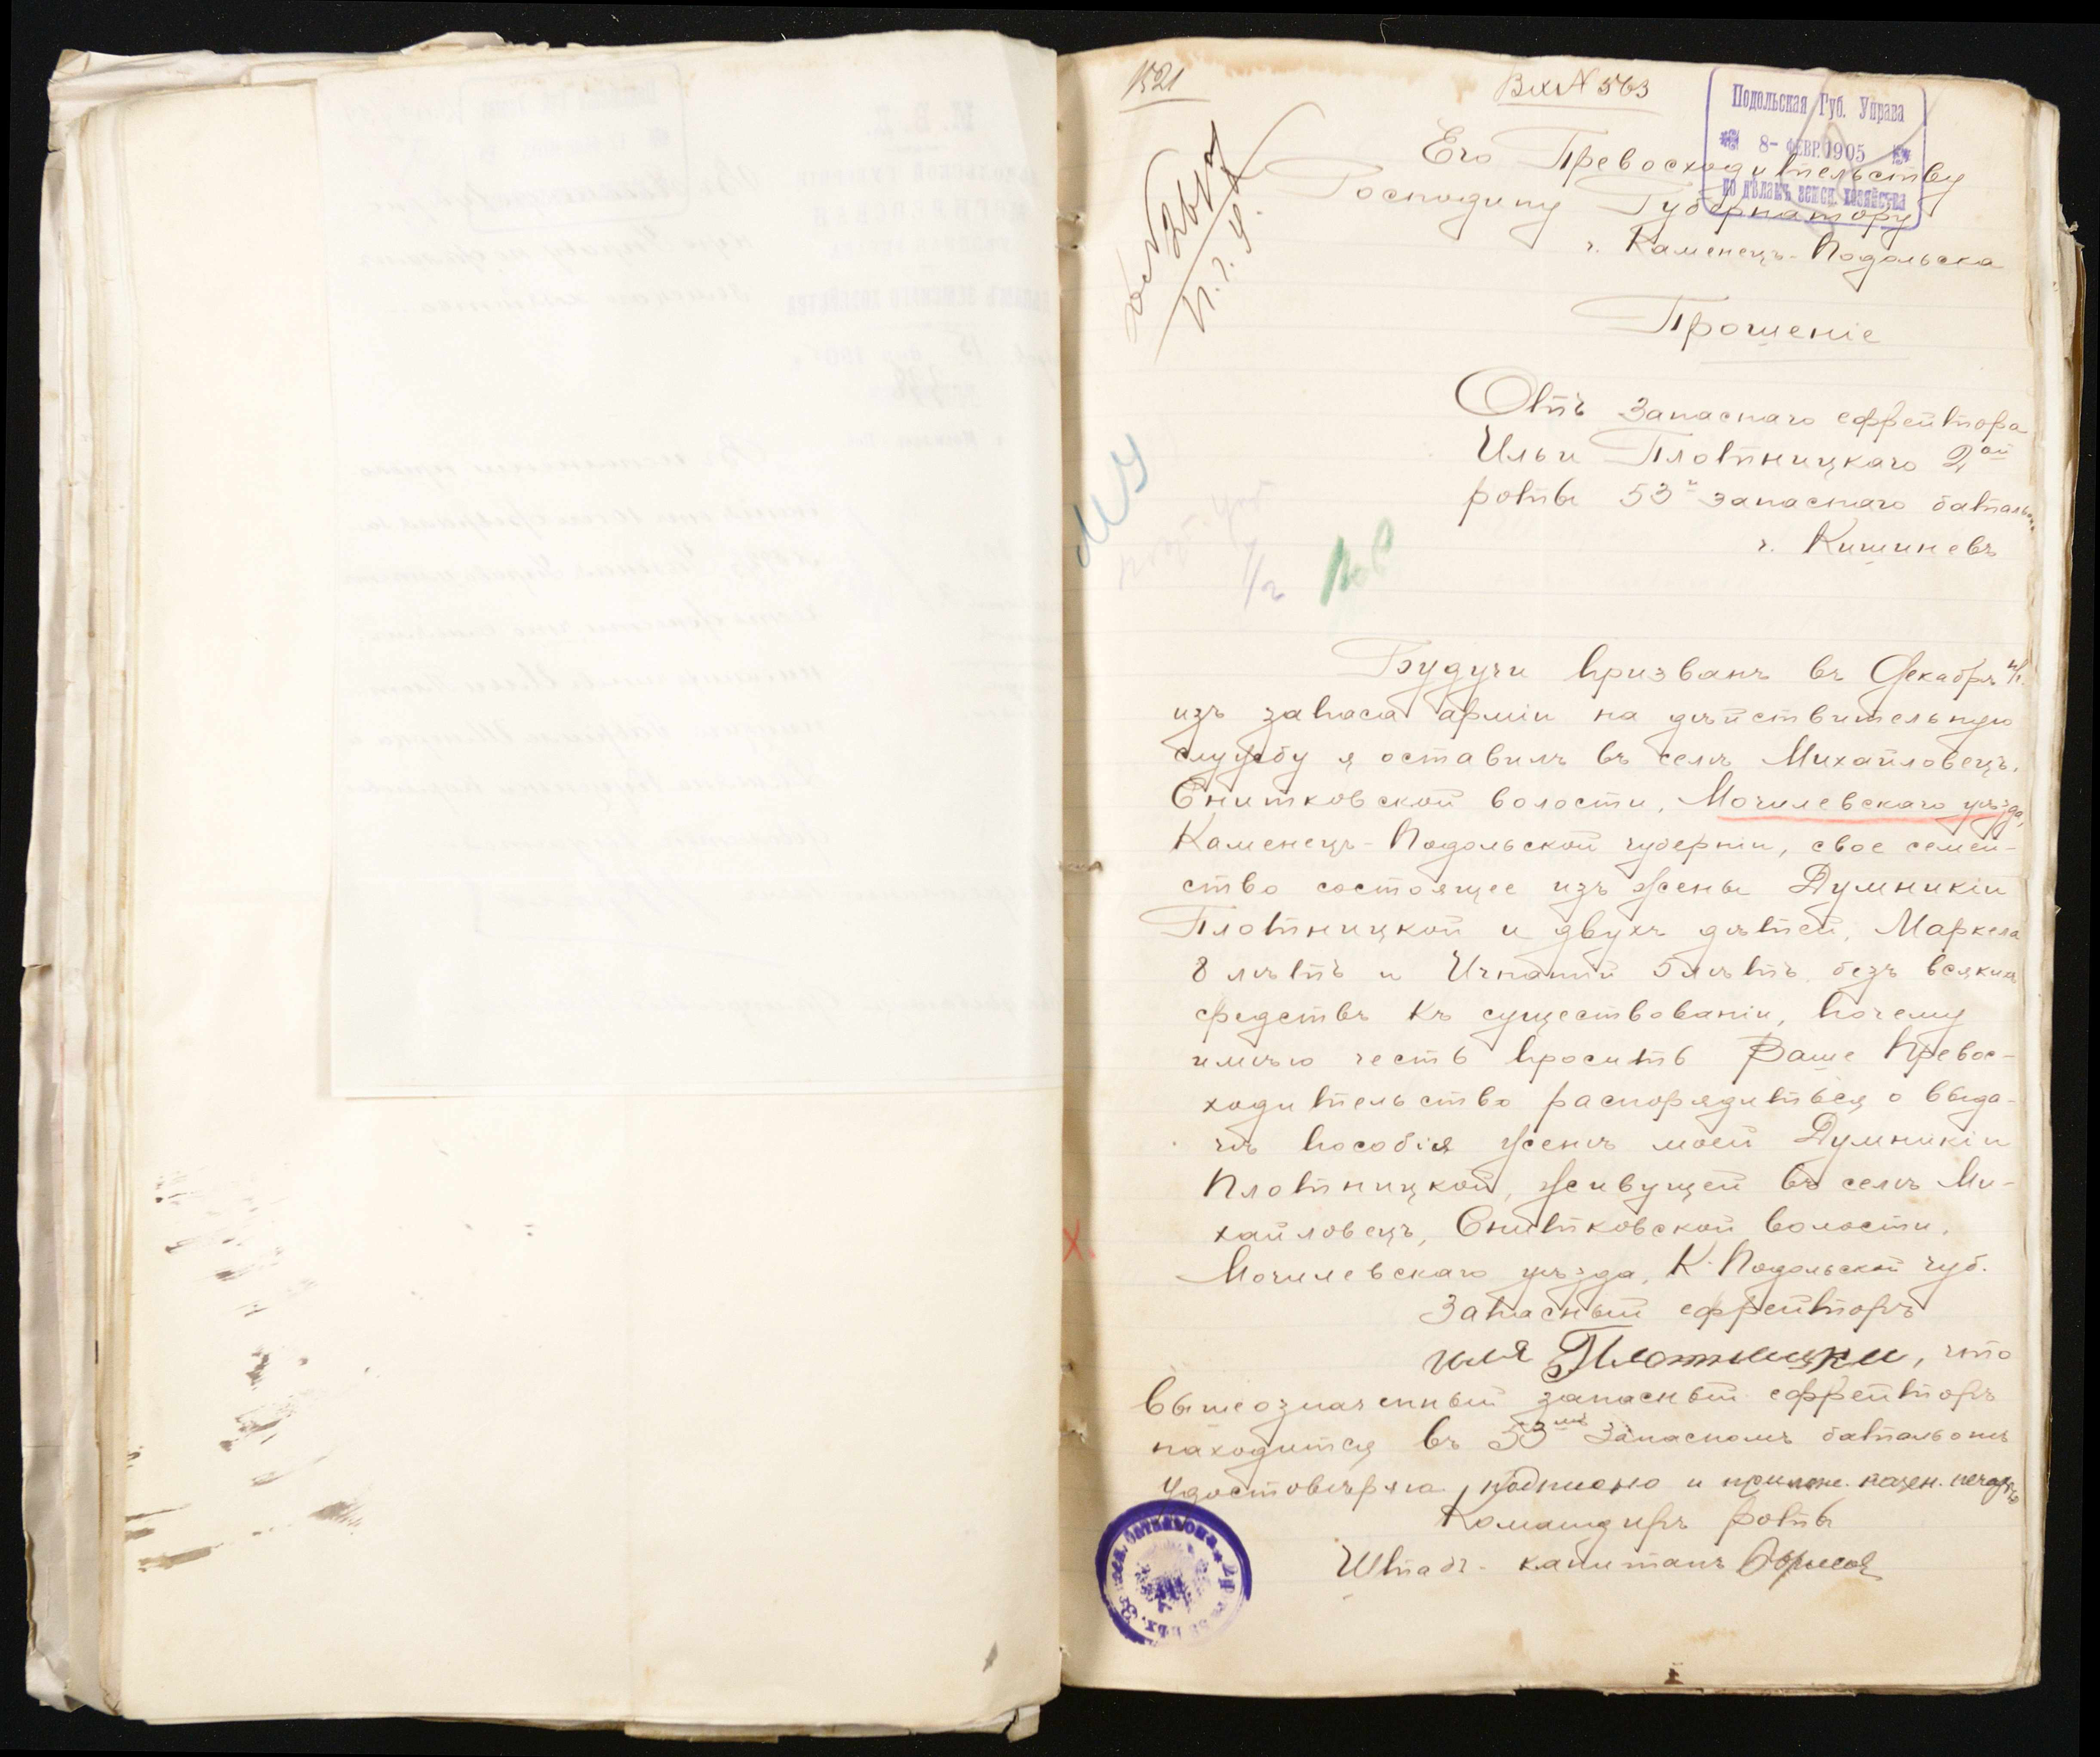 1521
Вх № 563
Подольская Губ. Управа
8 - ФЕВР. 1905
по дѣламъ земск. хозяйства
Его Превосходительству
Господину Губернатору
г. Каменецъ-Подольска
Прошеніе
Отъ Запаснаго ефрейтора
Ильи Плотницкаго 2ой
роты 53го запаснаго баталіона
г. Кишиневъ
Будучи призванъ въ Декабрѣ
изъ запаса арміи на дѣйствительную
службу я оставилъ въ селѣ Михайловецъ,
Снитковской волости, Могилевскаго уѣзда,
Каменецъ-Подольской губерніи, свое семей-
ство состоящее изъ жены Думникіи
Плотницкой и двухъ дѣтей, Маркела
8 лѣтъ и Игнатій 5 лѣтъ безъ всякихъ
средствъ къ существованіи, почему
имѣю честь просить Ваше Превос-
ходительство распорядиться о выда-
чѣ пособія женѣ моей Думникіи
Плотницкой, живущей въ селѣ Ми-
хайловецъ, Снитковской волости,
Могилевскаго уѣзда, К-Подольской губ.
Запасный ефрейторъ
илія Плотницки, что
вышеозначенный запасный ефрейторъ
находится въ 53мъ Запасномъ баталіонѣ
удостовѣряю подписью и прилож. казен. печати
Командиръ роты
Штабс-капитанъ